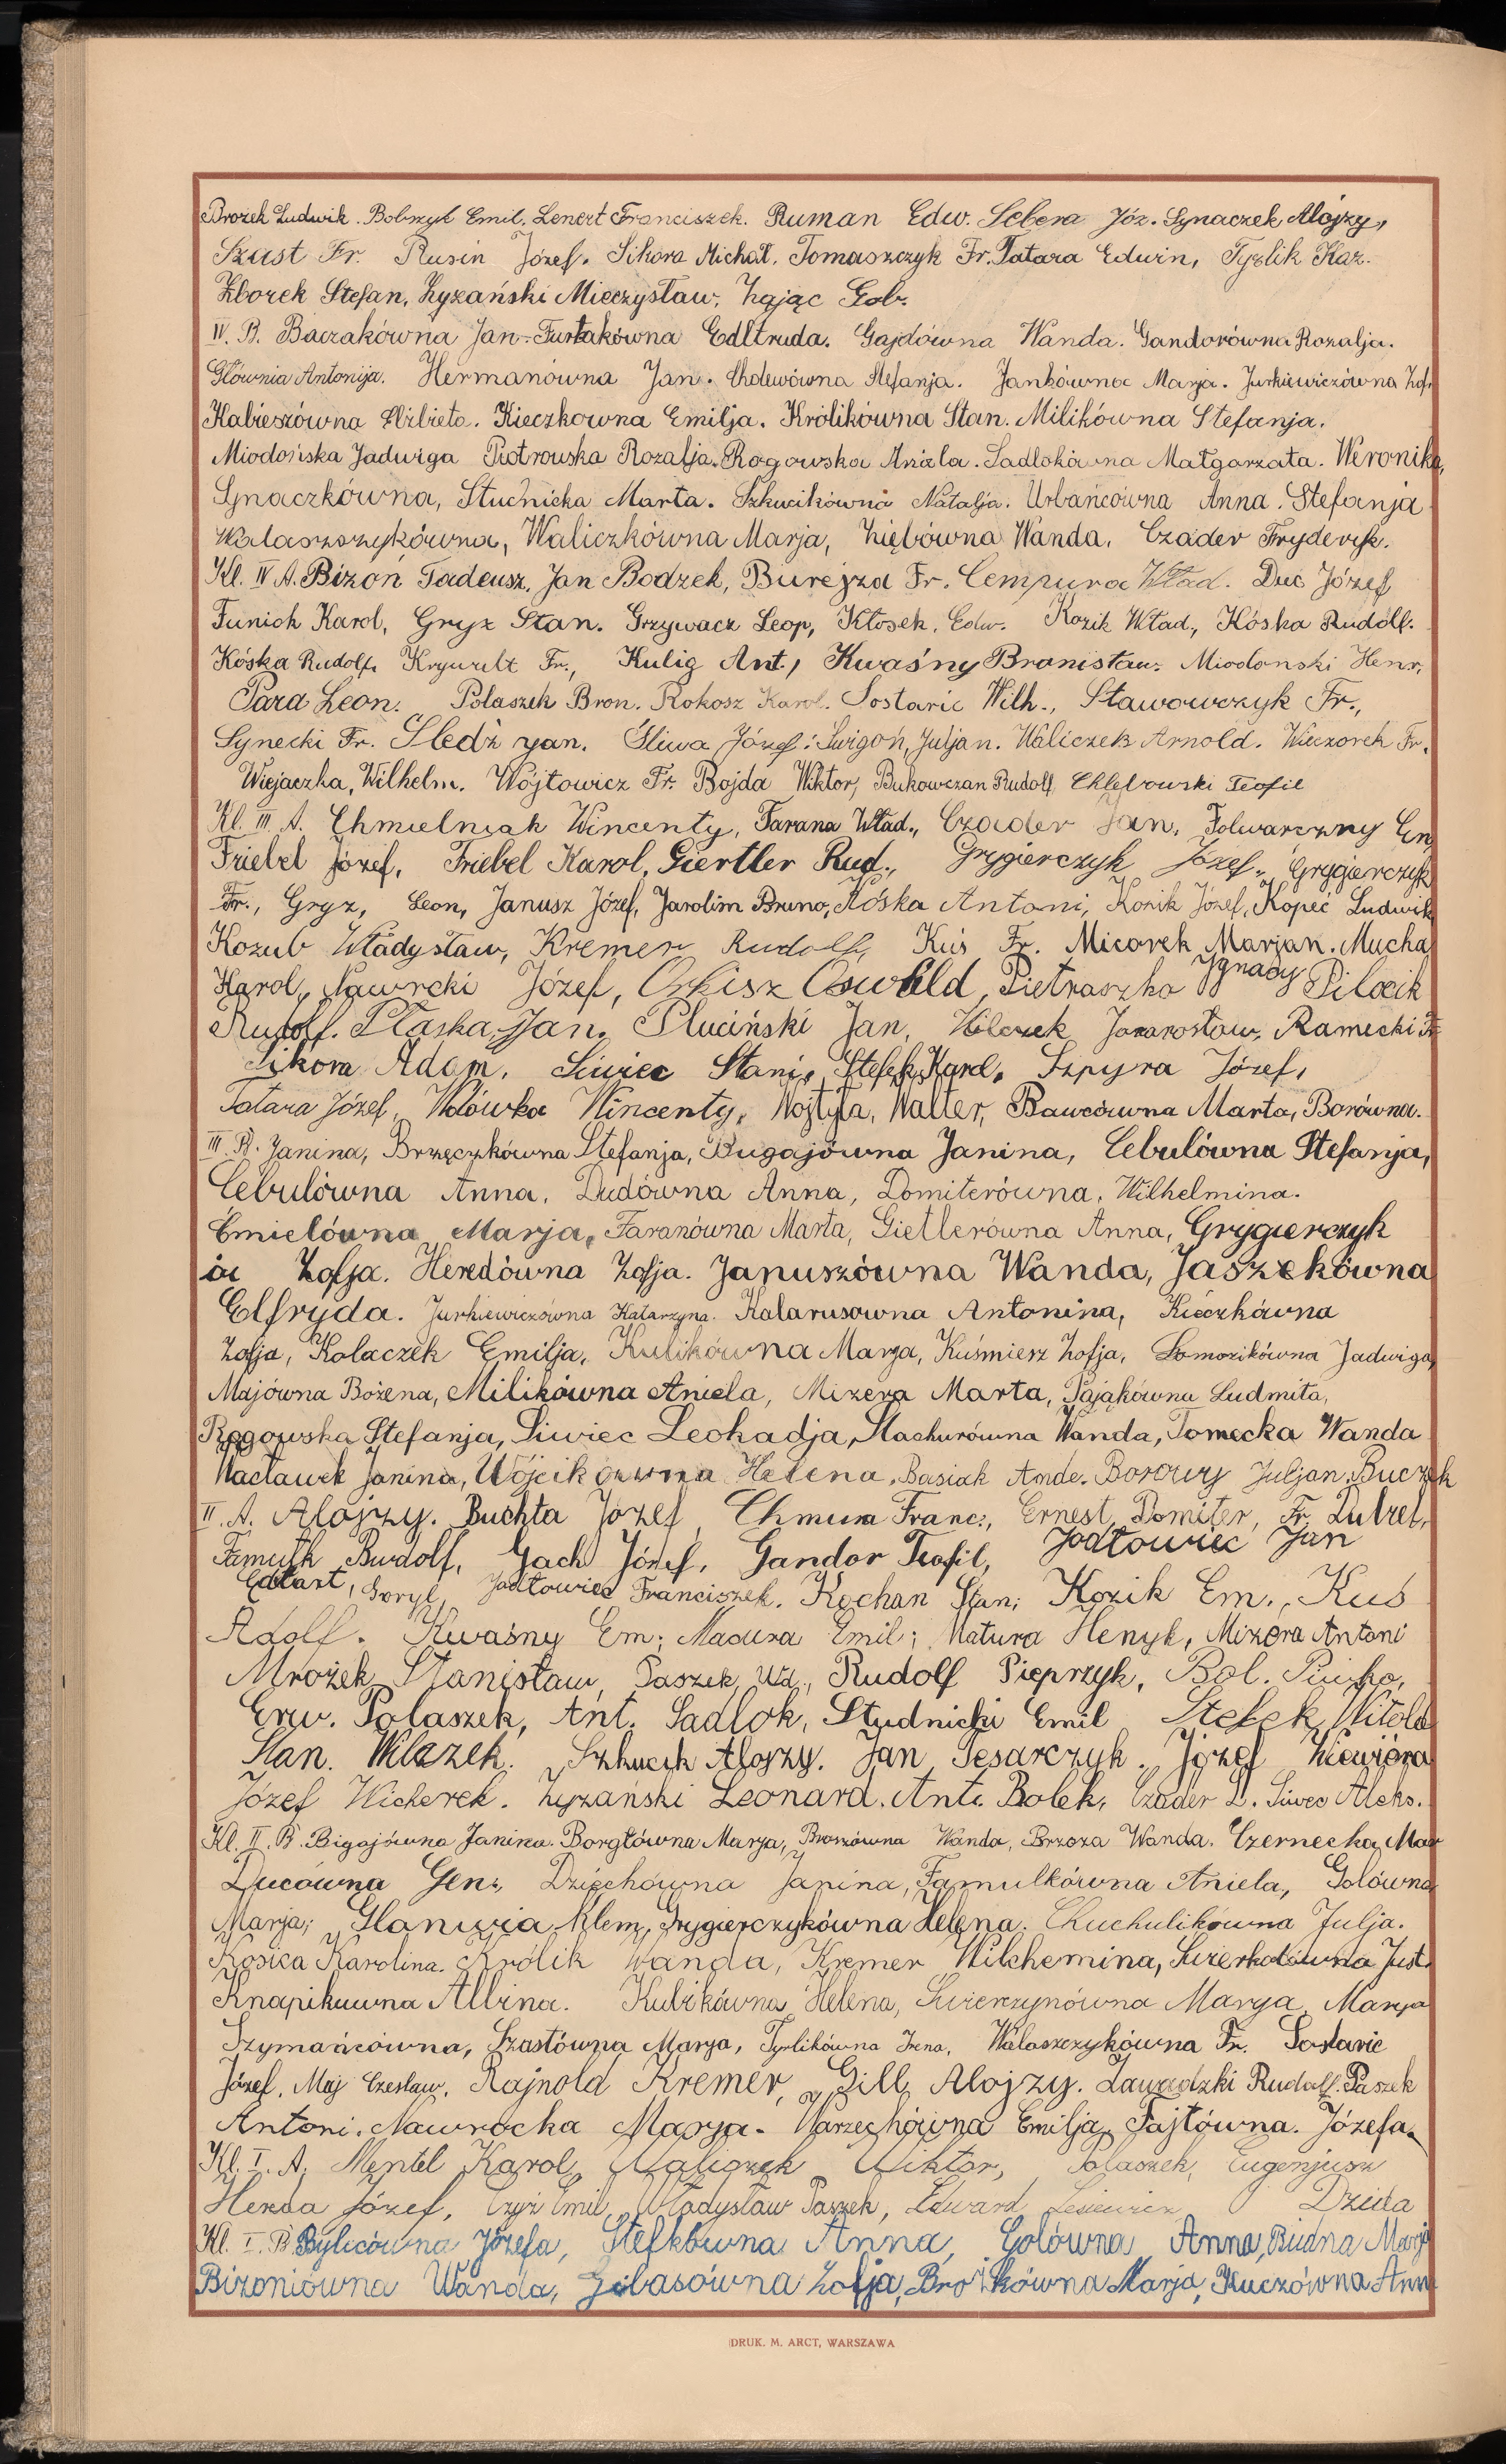 Brożek Ludwik. Bobrzyk Emil. Lenert Franciszek. Ruman Edw. Sebera Józ. Synaczek Alojzy,
Szust Fr. Rusin Józef. Sikora Michał. Tomaszczyk Fr. Tatara Edwin, Tyrlik Kaz.
Zborek Stefan, Zyzański Mieczysław, Zając Gob.
IV. B. Baczakówna Jan. Furtakówna Edltruda. Gajdówna Wanda. Gandorówna Rozalja.
Głównia Antonija. Hermanówna Jan. Chdewówna Stefanja. Jankówna Marja. Jurkiewiczówna Zof.
Kabieszówna Elżbieta. Kieczkowna Emilja. Królikówna Stan. Milikówna Stefanja.
Miodońska Jadwiga Piotrowska Rozalja. Rogowska Aniela. Sadlokówna Małgorzata. Weronika,
Synaczkówna, Studnicka Marta. Szkucikówna Natalja. Urbańcówna Anna. Stefanja
Walaszczykówna, Waliczkówna Marja, Ziębówna Wanda. Czader Fryderyk.
Kl. IV A. Bizoń Tadeusz, Jan Bodzek, Burejza Fr. Cempura Wład. Duc Józef
Funiok Karol, Gryz Stan. Grzywacz Leop, Kłosek, Edw. Kozik Wład., Kóska Rudolf.
Kóska Rudolf, Krywult Fr., Kulig Ant., Kwaśny Bronisław. Miodonski Henr,
Para Leon. Polaszek Bron. Rokosz Karol. Sostaric Wilh., Stawowczyk Fr.,
Synecki Fr. Śledź Jan. Śliwa Józef: Świgoń, Juljan. Waliczek Arnold. Wieczorek Fr,
Więjaczka, Wilhelm. Wójtowicz Fr. Bojda Wiktor, Bukowczan Rudolf, Chlebowski Teofil
Kl. III A. Chmielniak Wincenty, Farana Wład., Czader Jan, Folwarczny Em
Friebel Józef, Friebel Karol, Giertler Rud., Grygierczyk Józef, Grygierczyk
Fr., Gryz, Leon, Janusz Józef, Jarolim Bruno, Kóska Antoni, Kozik Józef, Kopeć Ludwik
Kozub Władysław, Kremer Rudolf, Kuś Fr. Micorek Marjan. Mucha
Karol, Nawrcki Józef, Orkisz Oswald, Pietraszko Ignacy Pilocik
Rudolf. Płaska, Jan, Pluciński Jan, Jararosław, Ramecki Fr
Sikora Adam. Siwiec Stani, Stefek Karol, Szpyra Józef,
Tatara Józef, Wdówka Wincenty, Wojtyła, Walter, Bawcówna Marta, Borówna.
III. B. Janina, Brzęczkówna Stefanja, Bugajówna Janina, Cebulówna Stefanja,
Cebulówna Anna, Dudówna Anna, Domiterówna, Wilhelmina.
Ćmielówna Marja, Faranówna Marta, Gietlerówna Anna, Grygierczyk
ów Zofja. Heredówna Zofja. Januszówna Wanda, Jaszekówna
Elfryda. Jurkiewiczówna Katarzyna. Kalarusowna Antonina, Kieczkówna
Zofja, Kolaczek Emilja, Kulikówna Marja, Kuśmierz Zofja, Łomozikówna Jadwiga,
Majówna Bożena, Milikówna Aniela, Mizera Marta, Pająkówna Ludmiła,
Rogowska Stefanja, Siwiec Leokadja, Stachurówna Wanda, Tomecka Wanda
Wacławek Janina, Wójcikówna Helena, Basiak Ande. Borowy Juljan. Buczek
II. A. Alojzy. Buchta Józef, Chmura Franc., Ernest Domiter, Fr. Dutrel,
Famulk Rudolf, Gach Józef, Gandor Teofil, Jodłowiec Jan
Goryl, Jodłowiec Franciszek. Kochan Stan; Kozik Em., Kuś
Adolf. Kwaśny Em; Madura Emil; Matura Henyk, Mizera Antoni
Mrożek Stanisław, Paszek, Wd., Rudolf Pieprzyk, Bol. Piwko,
Erw. Polaszek, Ant. Sadlok, Studnicki Emil Stefek Witold
Stan. Wilczek. Szkucik Alojzy. Jan Tesarczyk. Józef Wiewióra
Józef Wicherek. Zyzański Leonard. Ant. Bolek, Czader L. Siwec Aleks.
Kl. II. B. Bigajówna Janina. Borgłówna Marja, Broszówna Wanda, Brzoza Wanda. Czernecka Mar
Ducówna Gen., Dziechówna Janina, Famulkówna Aniela, Golówna
Marja; Glanwia Klem, Grygierczykówna Helena. Chuchulikówna Julja.
Kosica Karolina. Królik Wanda, Kremer Wilchemina, Świerkotówna Just.
Knapikuwna Albina. Kubikówna Helena, Świerczynówna Marya, Marya
Szymańcówna, Szastówna Marya, Tyrlikówna Irena, Walaszczykówna Fr. Sostaric
Józef, Maj Czesław, Rajnold Kremer, Gill Alojzy. Zawadzki Rudolf. Paszek
Antoni, Nawrocka Marja. Warzechówna Emilja, Fajtówna. Józefa.
Kl. I. A. Mentel Karol, Waliczek Wiktor, Polaszek, Eugenjusz
Herda Józef, Czyż Emil, Władysław Paszek, Edward Lesiewicz Dzida
Kl. I. B Bylicówna Józefa, Stefkówna Anna, Golówna Anna, Budna Marja
Bizoniówna Wanda, Gibasówna Zofja, Brożkówna Marja, Kuczówna Ann
DRUK. M. ARCT, WARSZAWA